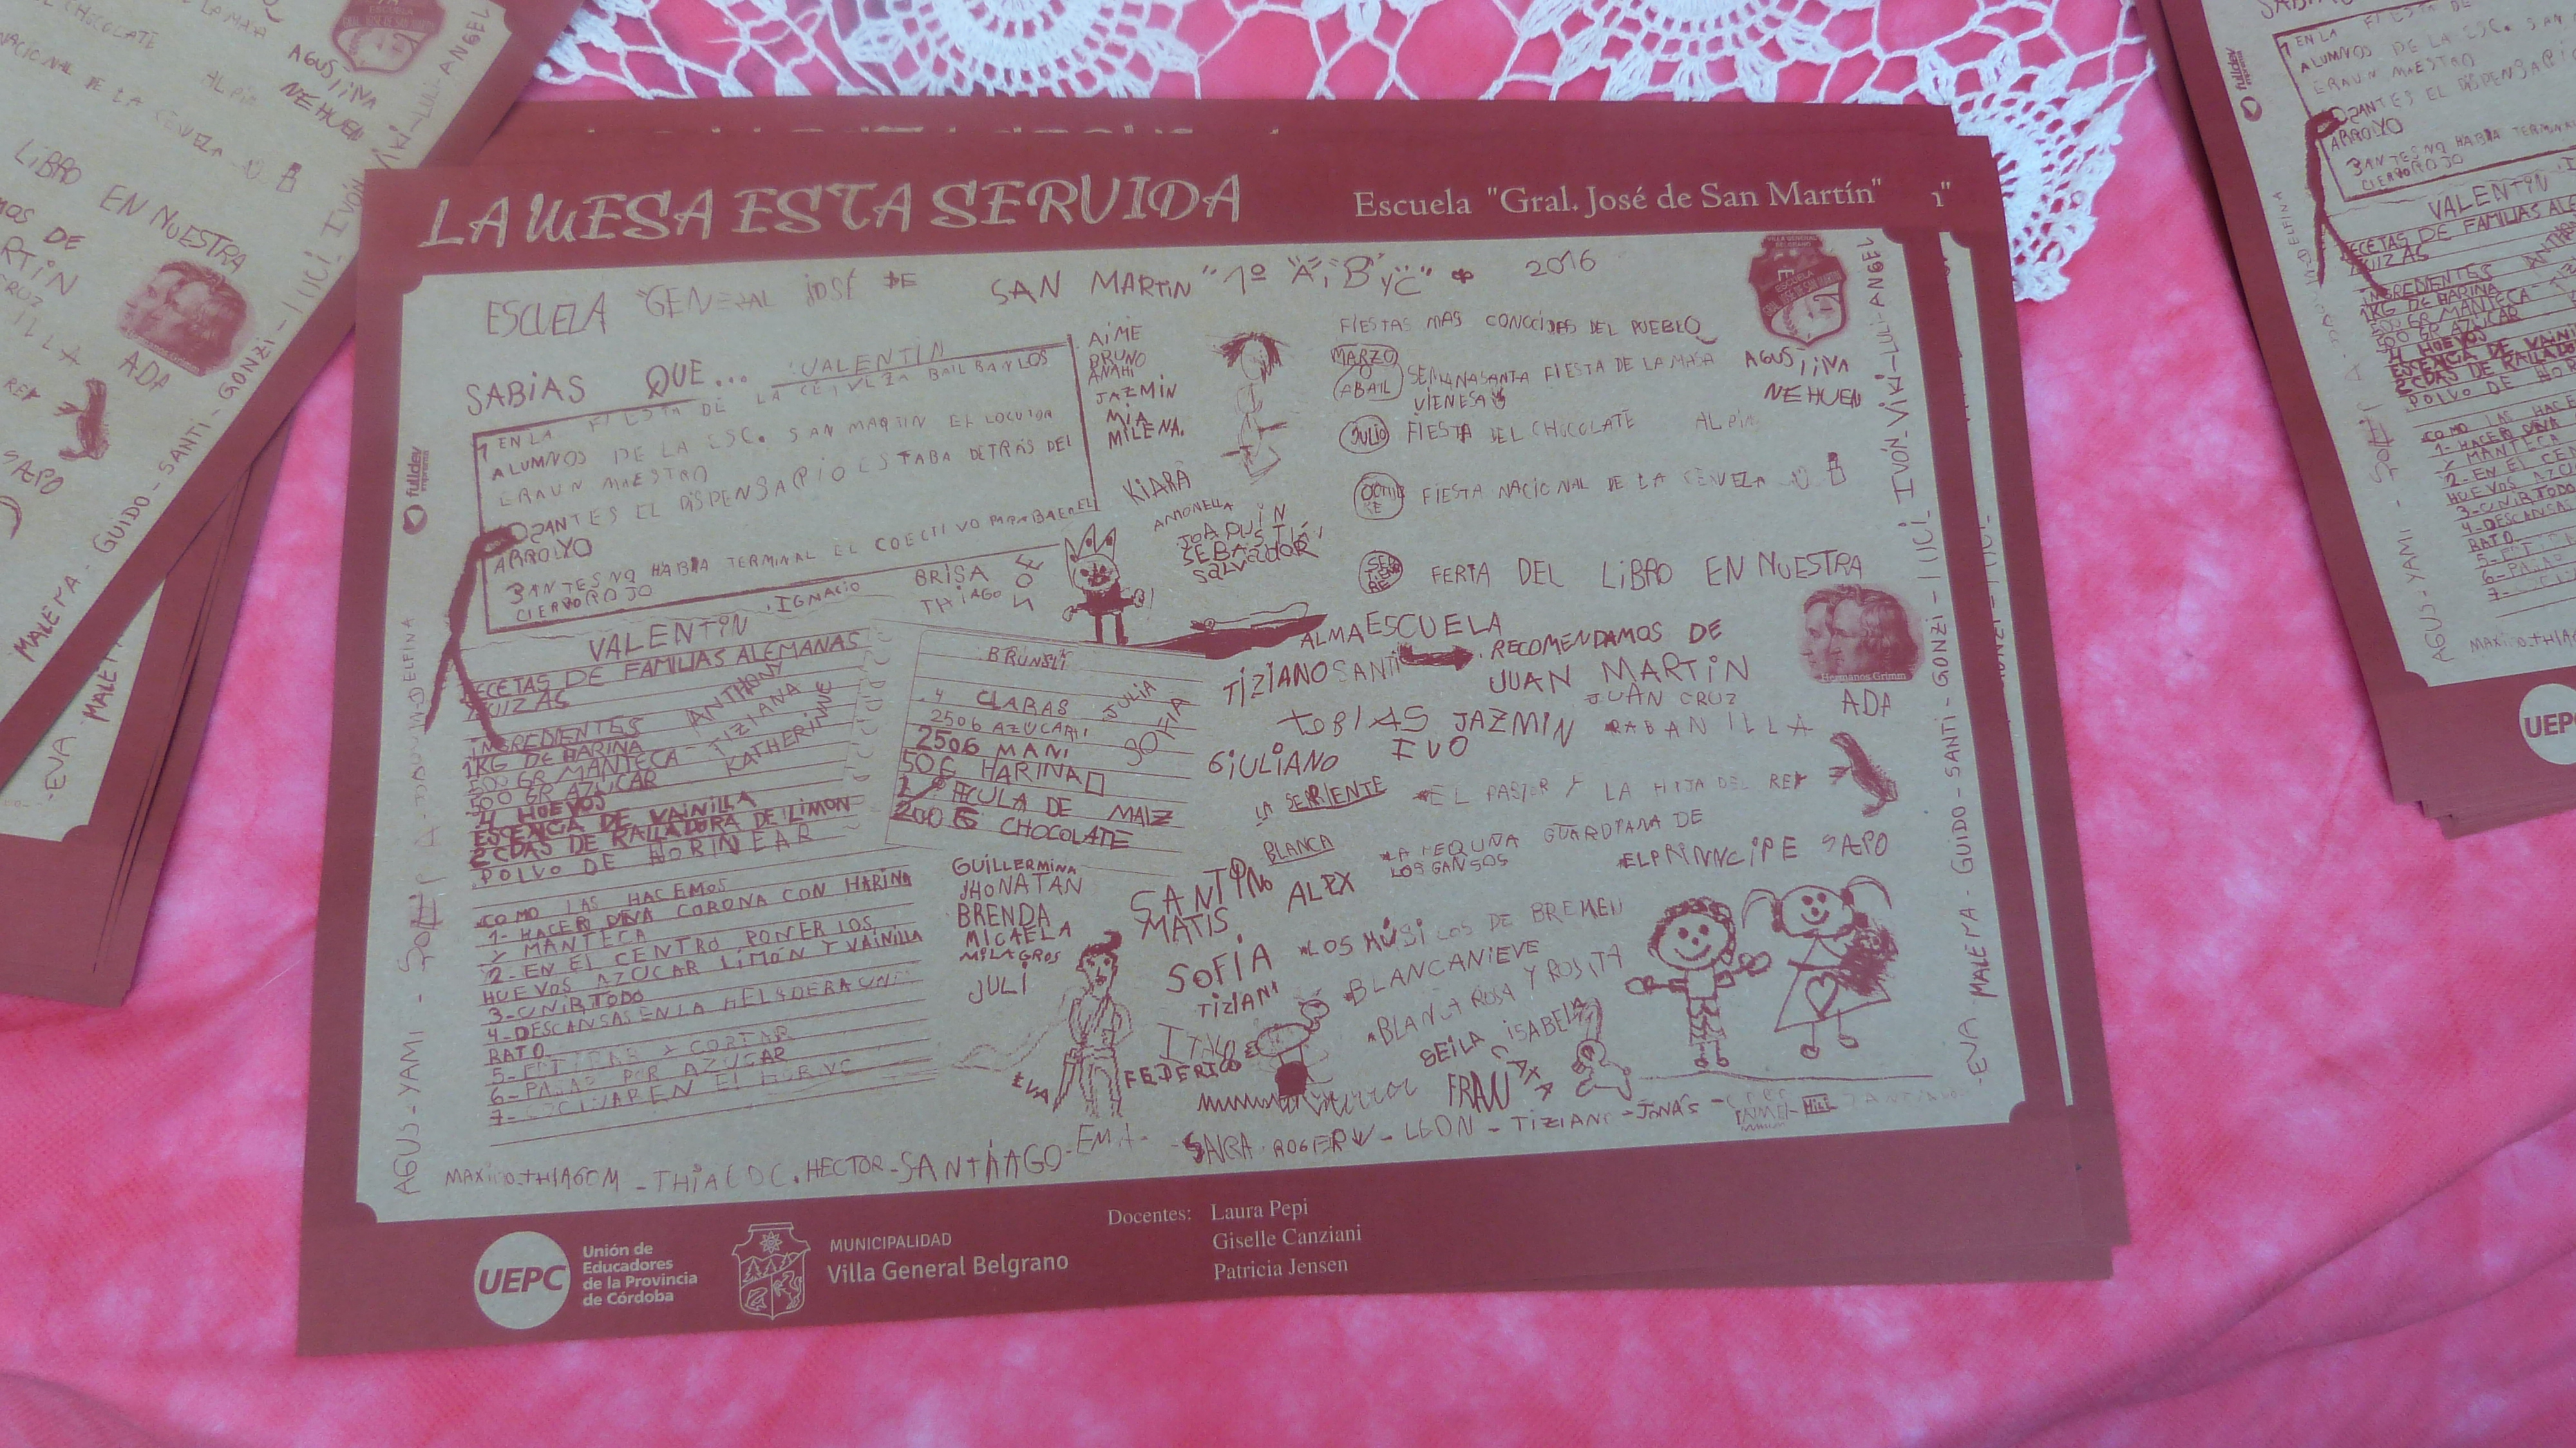 LA MESA ESTA SERVIDA
Escuela "Gral. José de San Martín"
ESCUELA "GENERAL JOSÉ DE SAN MARTIN "1º "A", "B" Y "C" 2016
SABIAS QUE...
VALENTIN
1 EN LA FIESTA DE LA CERVEZA BAILBAN LOS
ALUMNOS DE LA ESC. SAN MARTIN EL LOCUTOR
ERA UN MAESTRO
2 ANTES EL DISPENSARIO ESTABA DETRÁS DEL
ARROLYO
3 ANTES NO HABIA TERMINAL EL COLECTIVO PARABA EN EL
CIERRO ROJO
AIME
BRUNO
ANAHI
JAZMIN
MIA
MILENA.
KIARA
ANTONELLA
JOAQUIN
SEBASTIÁN
SALVADOR
VALENTIN
IGNACIO
BRISA
THIAGO
RECETAS DE FAMILIAS ALEMANAS
SUIZAS
ANTHONY
TIZIANA
KATHERINNE
INGREDIENTES
1KG DE HARINA
500 GR MANTECA
500 GR AZUCAR
4 HUEVOS
ESCENCIA DE VAINILLA
2 CDAS DE RALLADURA DE LIMON
POLVO DE HORINEAR
COMO LAS HACEMOS
1- HACER UNA CORONA CON HARINA
Y MANTECA
2- EN EL CENTRO PONER LOS
HUEVOS AZUCAR LIMÓN Y VAINILLA
3- UNIR TODO
4- DESCANSAS EN LA HELADERA UN
RATO
5- ESTIRAR Y CORTAR
6- PASAR POR AZUCAR
7- COCINAR EN EL HORNO
BRUNSLI
4 CLARAS
250G AZUCAR
250G MANI
50G HARINA
FECULA DE MAIZ
200 G CHOCOLATE
JULIA
SOFIA
GUILLERMINA
JHONATAN
BRENDA
MICAELA
MILAGROS
JULI
EVA
FIESTAS MAS CONOCIDAS DEL PUEBLO
MARZO
O
ABRIL
SEMANA SANTA FIESTA DE LA MASA
VIENESA
JULIO
FIESTA DEL CHOCOLATE ALPIN
OCTUBRE
FIESTA NACIONAL DE LA CERVEZA
SETIEMBRE
FERIA DEL LIBRO EN NUESTRA
ESCUELA
AGUSTINA
NEHUEN
ALMA
TIZIANO SANTI
RECOMENDAMOS DE
JUAN MARTIN
JUAN CRUZ
Hermanos Grimm
ADA
TOBIAS JAZMIN
RABANILLA
GIULIANO IVO
LA SERPIENTE
BLANCA
EL PASTOR Y LA HIJA DEL REY
LA PEQUÑA GUARDIANA DE
LOS GANSOS
EL PRINNCIPE SAPO
SANTINO
ALEX
MATIS
LOS MÚSICOS DE BREMEN
SOFÍA
BLANCANIEVE
TIZIANI
BLANCA ROSA Y ROSITA
FEDERICO
SEILA ISABELLA
FRAU
MAXIMO - THIAGO M - THIAGO C. HECTOR - SANTIAGO - EMA -
SAIRA - ROGER W - LEON - TIZIANO - JONÁS
AGUS - YAMI
DELFINA
EVA MALE MA - GUIDO - SANTI - GONZI - LUCI IVÓN - VIKI - LULI - ANGEL
fulldev
imprenta
UEPC
Unión de
Educadores
de la Provincia
de Córdoba
MUNICIPALIDAD
Villa General Belgrano
Docentes: Laura Pepi
Giselle Canziani
Patricia Jensen